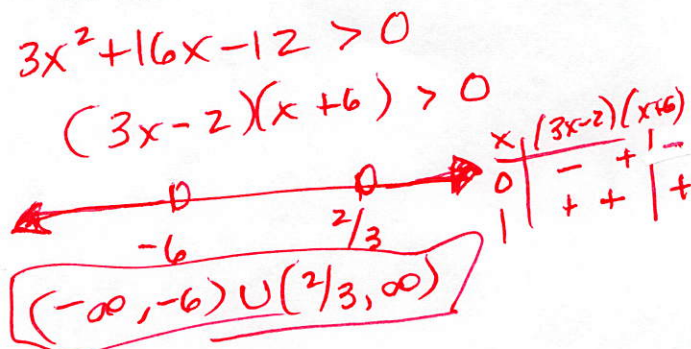 3x²+16x-12 > 0
(3x-2)(x+6) > 0
x | (3x-2)(x+6)
0 | - + | -
1 | + + | +
-6 2/3
(-∞,-6)∪(2/3,∞)